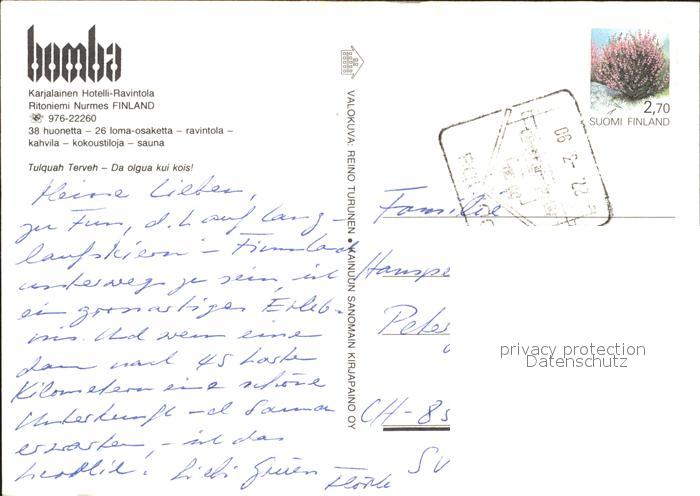 bomba
Karjalainen Hotelli-Ravintola
Ritoniemi Nurmes FINLAND
☎ 976-22260
38 huonetta – 26 loma-osaketta – ravintola –
kahvila – kokoustiloja – sauna
Tulquah Terveh – Da olgua kui kois!
Meine Lieben,
zu Fuss, d.h. auf Lang-
laufskiern in Finnland
unterwegs zu sein, ist
ein grossartiges Erleb-
nis. Und wenn eine
dann nach 45 harten
Kilometern eine schöne
Unterkunft und Sauna
erwarten, – ist das
herrlich! Liebi Grüess
VALOKUVA: REINO TURUNEN • KAINUUN SANOMAIN KIRJAPAINO OY
2,70
SUOMI FINLAND
22. 3. 90
Familie
Hanspe
Peter
CH-8
privacy protection
Datenschutz